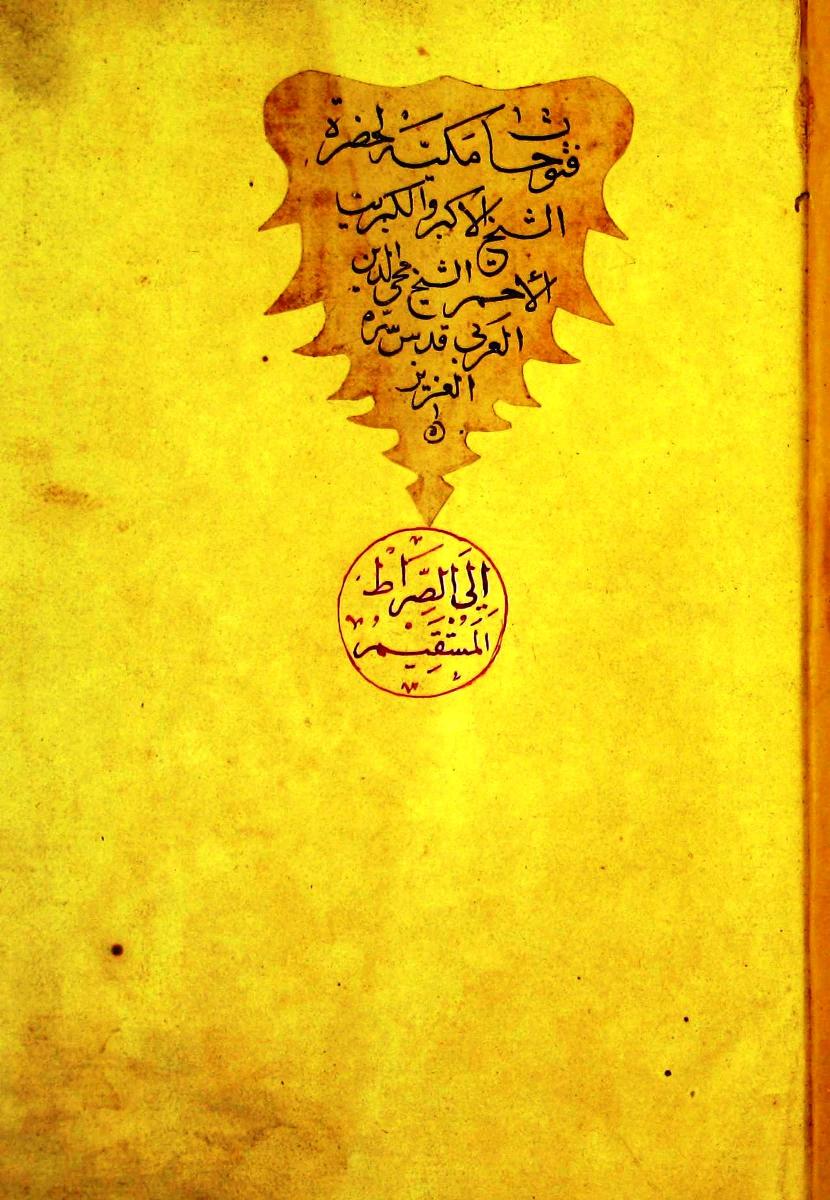 فتوحات مكيّة لحضرة
الشيخ الاكبر والكبريت
الأحمر الشيخ محى الدين
العربى قدس سرّه
العزيز
إِلَى الصِّرَاطِ
المُسْتَقِيمِ